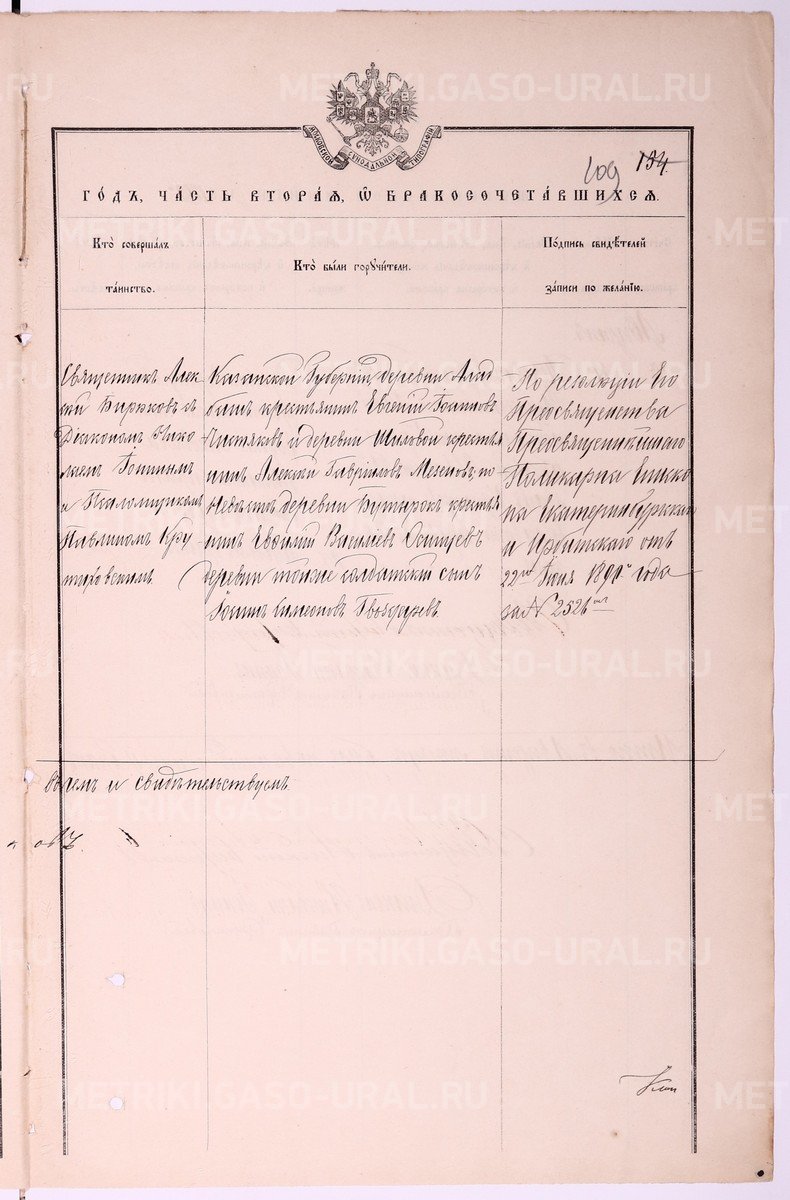 МОСКОВСКОЙ СѴНОДАЛЬНОЙ ТИПОГРАФІИ
109 134.
ГО́ДЪ, ЧА́СТЬ ВТОРА́Я, Ѡ҆ БРАКОСОЧЕТА́ВШИХСЯ.
Кто̀ соверша́лъ
та́инство.
Кто̀ бы́ли поручи́тели.
По́дпись свидѣ́телей
за́писи по жела́нію.
Священникъ Алек-
сѣй Бирюковъ съ
Діакономъ Нико-
лаемъ Іоанинымъ
и Псаломщикомъ
Павлиномъ Кру-
тиховскимъ
Казанской Губерніи, деревни
башъ крестьянинъ Евгеній Іоанновъ
Чистяковъ и деревни Шиловой крестья
нинъ Алексѣй Гавріиловъ Мезеновъ, по
Невѣстѣ деревни Бутырокъ крестья
нинъ Евѳимій Васильевъ
деревни тойже солдатскій сынъ
Іоаннъ Симеоновъ Гвоздаревъ.
По резолюціи Его
Преосвященства
Преосвященнѣйшаго
Поликарпа Епископа
па Екатеринбургскаго
и Ирбитскаго отъ
22го Іюня 1890го года
за № 2526мъ
вѣремъ и свидѣтельствуемъ.
овъ.
METRIKI.GASO-URAL.RU